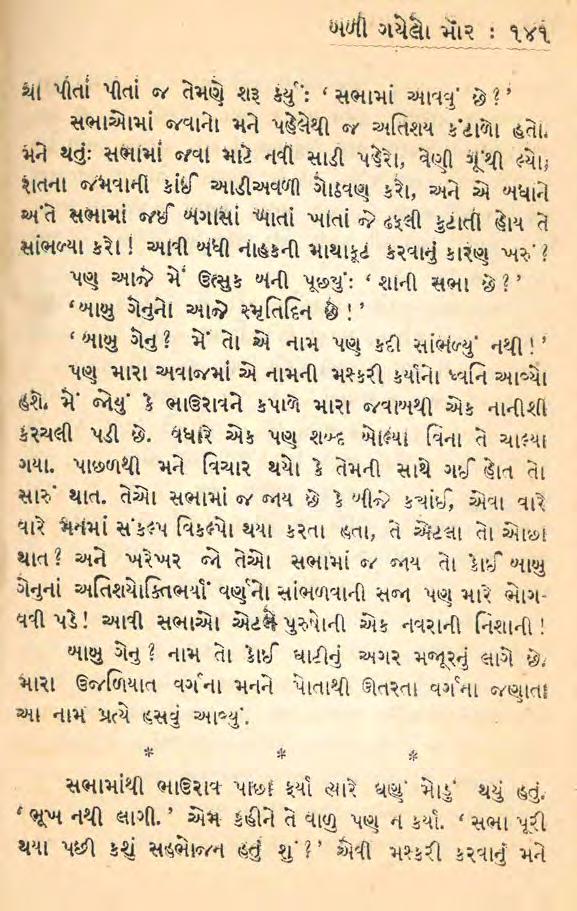 બળી ગયેલો મોર : ૧૪૧
ચા પીતાં પીતાં જ તેમણે શરૂ કર્યું: ‘ સભામાં આવવું છે ? ’
સભાઓમાં જવાનો મને પહેલેથી જ અતિશય કંટાળો હતો.
મને થતું: સભામાં જવા માટે નવી સાડી પહેરો, વેણી ગૂંથી લ્યો,
રાતના જમવાની કાંઈ આડીઅવળી ગોઠવણ કરો, અને એ બધાને
અંતે સભામાં જઈ બગાસાં ખાતાં ખાતાં જે ઢફલી કુટાતી હોય તે
સાંભળ્યા કરો ! આવી બધી નાહકની માથાકૂટ કરવાનું કારણ ખરું ?
પણ આજે મેં ઉત્સુક બની પૂછ્યું: ‘ શાની સભા છે ? ’
‘ બાબુ ગેનુનો આજે સ્મૃતિદિન છે ! ’
‘ બાબુ ગેનુ ? મેં તો એ નામ પણ કદી સાંભળ્યું નથી ! ’
પણ મારા અવાજમાં એ નામની મશ્કરી કર્યાનો ધ્વનિ આવ્યો
હશે. મેં જોયું કે ભાઉરાવને કપાળે મારા જવાબથી એક નાનીશી
કરચલી પડી છે. વધારે એક પણ શબ્દ બોલ્યા વિના તે ચાલ્યા
ગયા. પાછળથી મને વિચાર થયો કે તેમની સાથે ગઈ હોત તો
સારું થાત. તેઓ સભામાં જ જાય છે કે બીજે કયાંઈ, એવા વારે
વારે મનમાં સંકલ્પ વિકલ્પો થયા કરતા હતા, તે એટલા તો ઓછા
થાત ? અને ખરેખર જો તેઓ સભામાં જ જાય તો કોઈ બાબુ
ગેનુનાં અતિશયોક્તિભર્યાં વર્ણનો સાંભળવાની સજા પણ મારે ભોગ-
વવી પડે ! આવી સભાઓ એટલે પુરુષોની એક નવરાની નિશાની !
બાબુ ગેનુ ? નામ તો કોઈ ઘાટીનું અગર મજૂરનું લાગે છે.
મારા ઉજળિયાત વર્ગના મનને પોતાથી ઊતરતા વર્ગના જણાતા
આ નામ પ્રત્યે હસવું આવ્યું.
* * *
સભામાંથી ભાઉરાવ પાછા ફર્યા ત્યારે ઘણું મોડું થયું હતું.
‘ ભૂખ નથી લાગી. ’ એમ કહીને તે વાળુ પણ ન કર્યા. ‘ સભા પૂરી
થયા પછી કશું સહભોજન હતું શું ? ’ એવી મશ્કરી કરવાનું મને